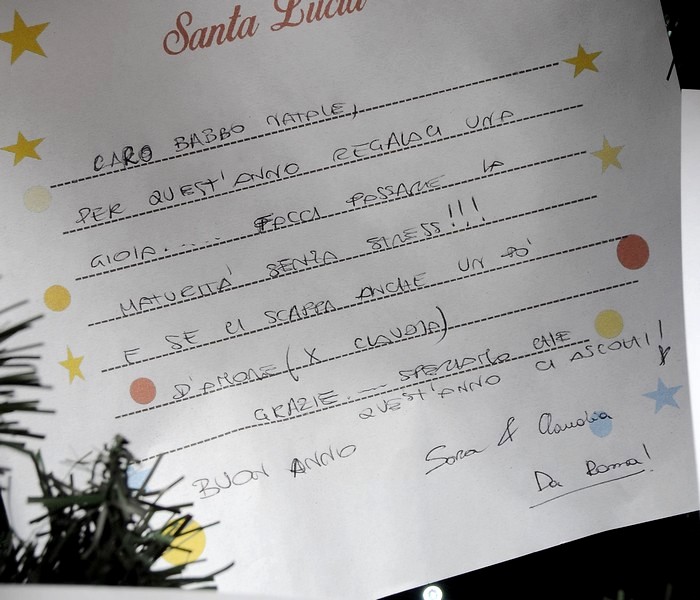 Santa Lucia
CARO BABBO NATALE,
PER QUEST'ANNO REGALACI UNA
GIOIA..... FACCI PASSARE LA
MATURITA' SENZA STRESS!!!
E SE CI SCAPPA ANCHE UN PO'
D'AMORE (X CLAUDIA)
GRAZIE.... SPERIAMO CHE
QUEST'ANNO CI ASCOLTI!!
BUON ANNO Sara & Claudia
Da Roma!